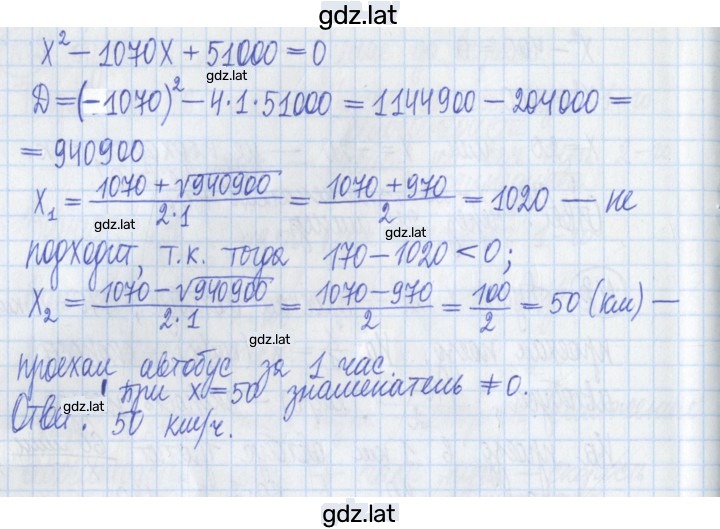 gdz.lat
x² − 1070x + 51000 = 0
gdz.lat
Д = (−1070)² − 4·1·51000 = 1144900 − 204000 =
= 940900
x₁ = (1070 + √940900)/(2·1) = (1070 + 970)/2 = 1020 — не
gdz.lat
подходит, т.к. тогда 170 − 1020 < 0;
x₂ = (1070 − √940900)/(2·1) = (1070 − 970)/2 = 100/2 = 50 (км) —
gdz.lat
проехал автобус за 1 час.
при x = 50 знаменатель ≠ 0.
gdz.lat
Ответ: 50 км/ч.
gdz.lat